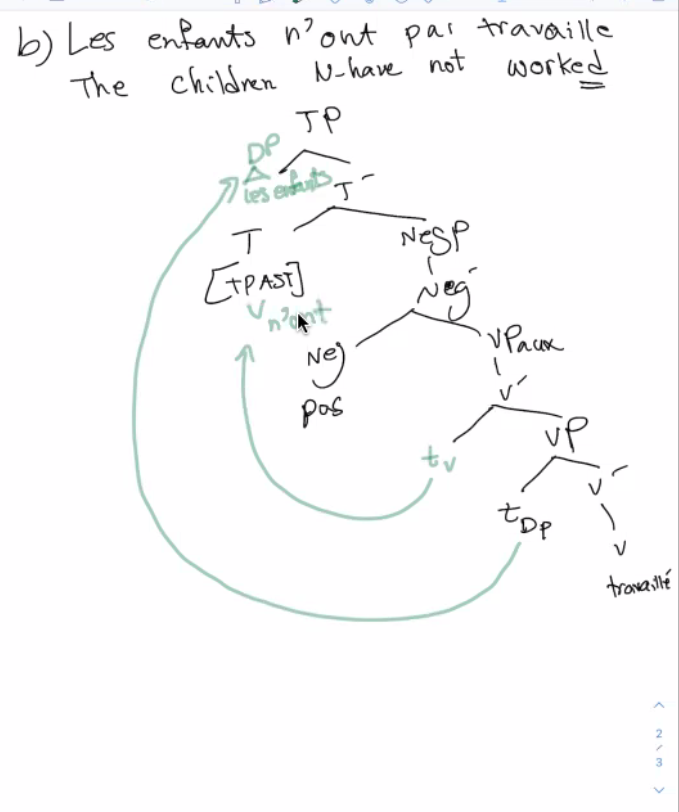 b) Les enfants n'ont pas travaille
The children N-have not worked
TP
DP
les enfants
T'
T
NegP
[+PAST]
Neg'
V n'ont
Neg
VPaux
pas
V'
VP
tv
V'
tDP
V
travaillé
2
/
3